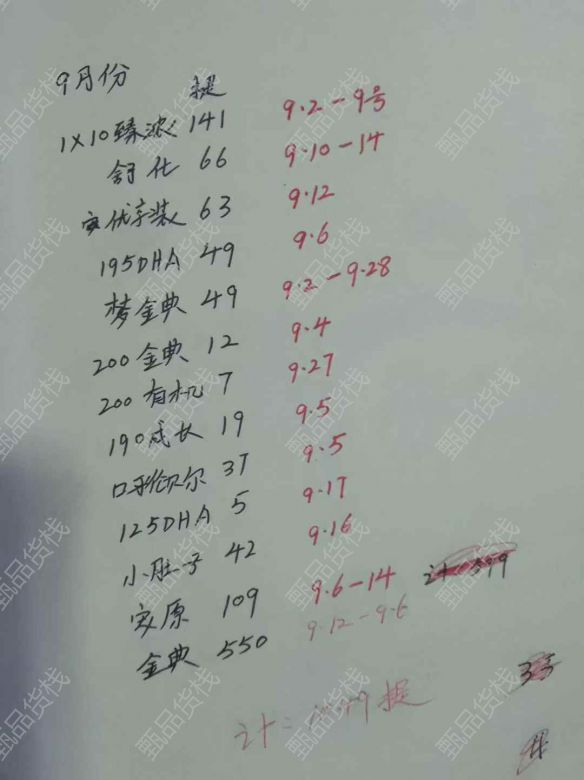 9月份 提
1X10臻浓 141 9.2-9号
舒化 66 9.10-14
安优亲装 63 9.12
195DHA 49 9.6
梦金典 49 9.2-9.28
200金典 12 9.4
200有机 7 9.27
190成长 19 9.5
呼伦贝尔 37 9.5
125DHA 5 9.17
小肚子 42 9.16
安原 109 9.6-14
金典 550 9.12-9.6
计 599
计= 提
甄品货栈